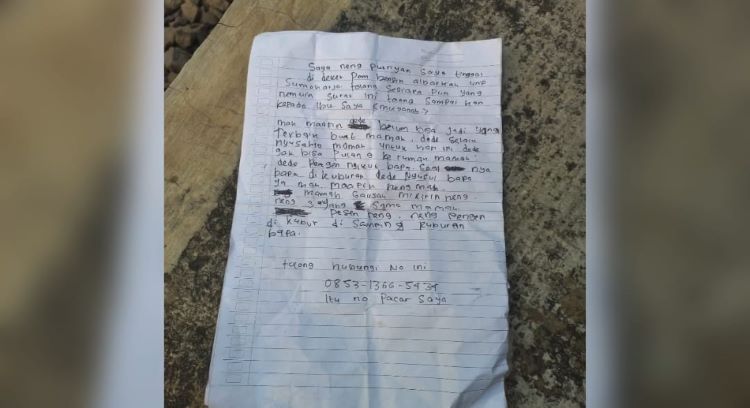 Saya neng Puriyan saya tinggal
di deket Pom bensin albarkah
Sumoharjo tolong sebiara Pun yang
nemuin surat ini tolong sampai kan
kepada ibu saya
mah maapin belum bisa jadi yang
Terbaik buat mamah, dede selalu
nyusahin mamah untuk hari ini dede
gak bisa Pulang ke rumah mamah.
dede Pengen ngikut bapa. nya
bapa di kuburan dede Nyusul bapa
ya mah maapin neng mah.
mamah Gausah mikirin neng.
neng sayang sama mamah.
Pesen neng. neng Pengen
di kubur di samping kuburan
bapa.
tolong hubungi No ini
0853-1366-5434
Itu no Pacar saya